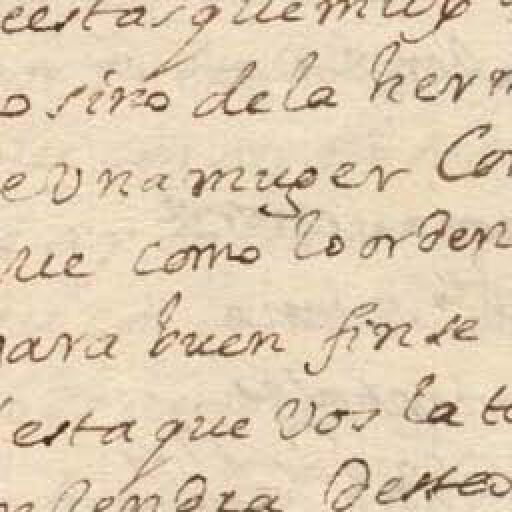 eestas que muy
o sino de la herm
e vna muger Con
ue como lo orden
para buen fin se
esta que vos la to
tendra desseo